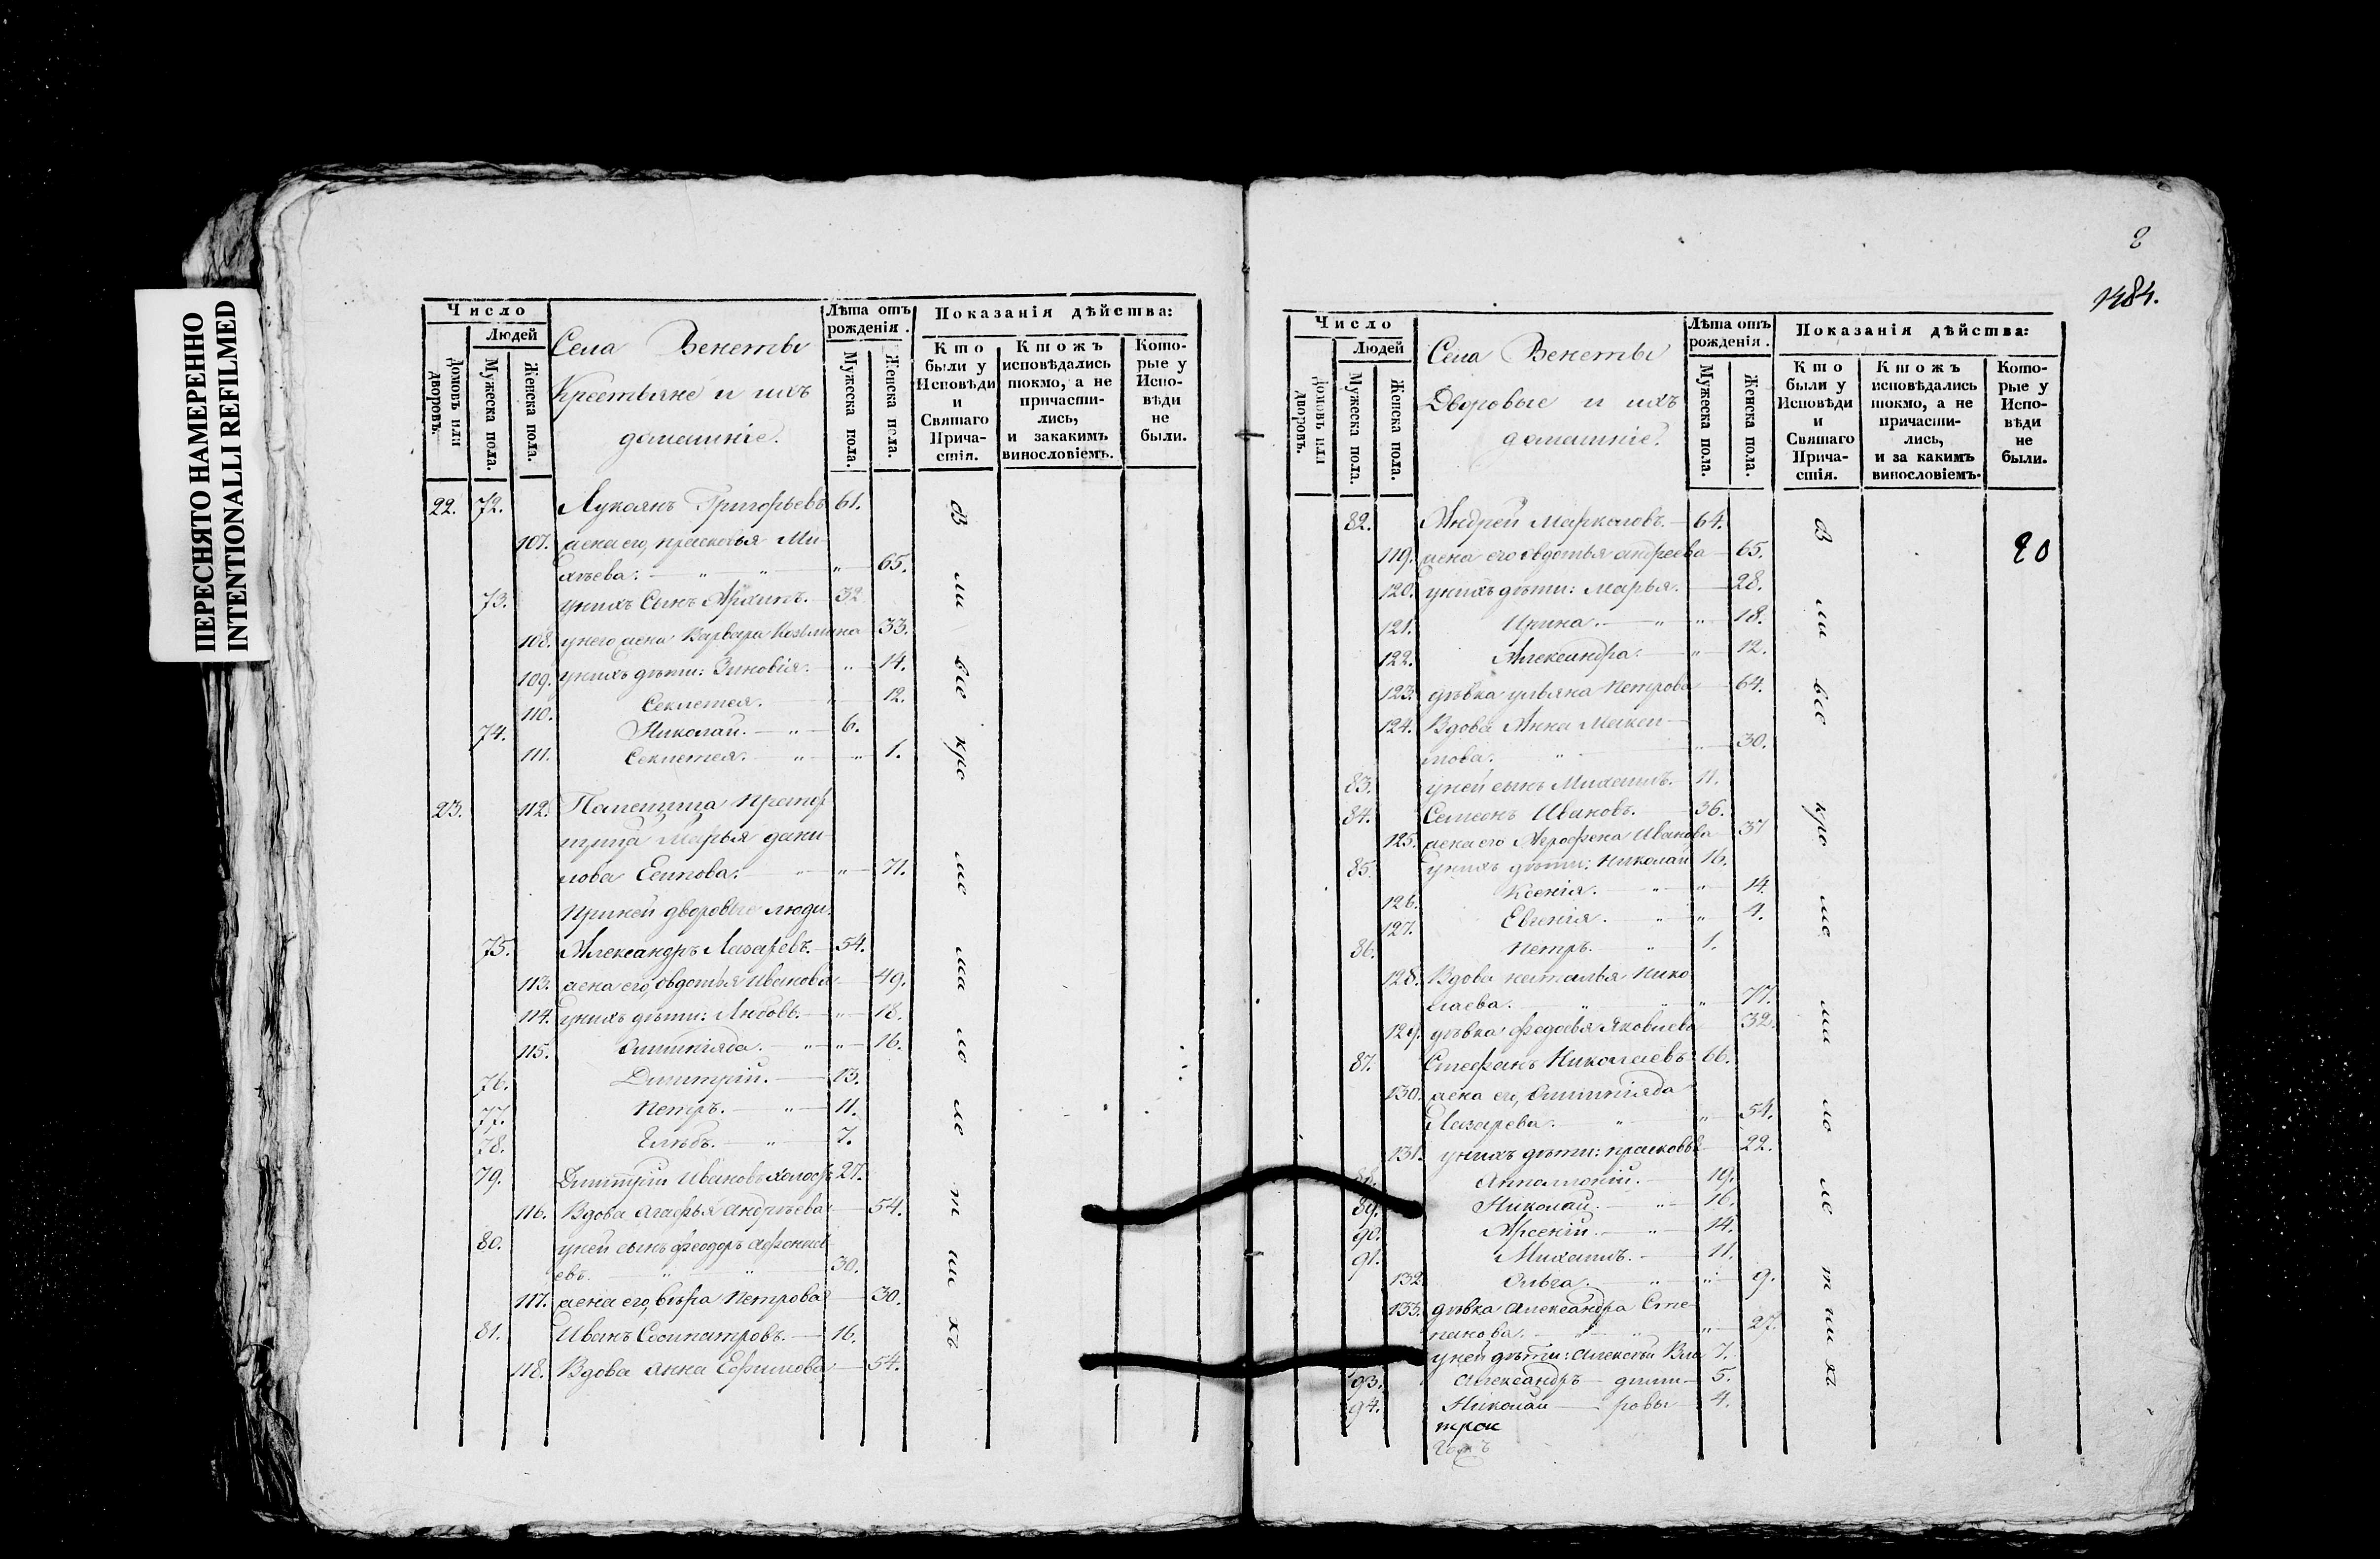 ПЕРЕСНЯТО НАМЕРЕННО
INTENTIONALLI REFILMED
Число
Людей
Домовъ или дворовъ.
Мужеска пола.
Женска пола.
Села Венеты
Крестьяне и ихъ
домашніе.
Лѣта отъ рожденія.
Мужеска пола.
Женска пола.
Показанія дѣйства:
Кто были у Исповѣди и Святаго Причастія.
Ктожъ исповѣдались токмо, а не причастились, и закакимъ винословіемъ.
Которые у Исповѣди не были.
22. 72. Лукоянъ Григорьевъ 61.
107. жена его, прасковья Ми-
хѣева. 65.
73. унихъ Сынъ Архипъ. 32
108. унего жена Варвара Козьмина 33.
109. унихъ дѣти: Зиновія. 14.
110. Секлетея. 12.
74. Николай. 6.
111. Секлетея. 1.
23. 112.
Марья дани-
лова Есипова. 71.
Приней дворовые люди.
75. Александръ Лазаревъ. 54.
113. жена его, Овдотья Иванова 49.
114. унихъ дѣти: Любовь. 18.
115. Олимпіяда. 16.
76. Димитрій. 13.
77. Петръ. 11.
78. Глѣбъ. 7.
79. Димитрій Ивановъ холостъ 27.
116. Вдова Агафья Андрѣева 54.
80. уней сынъ Феодоръ
евъ. 30.
117. жена его, вѣра Петрова 30.
81. Иванъ Сосипатровъ. 16.
118. Вдова Анна Ефимова 54.
8
1484.
Число
Людей
Домовъ или дворовъ.
Мужеска пола.
Женска пола.
Села Венеты
Дворовые и ихъ
домашніе.
Лѣта отъ рожденія.
Мужеска пола.
Женска пола.
Показанія дѣйства:
Кто были у Исповѣди и Святаго Причастія.
Ктожъ исповѣдались токмо, а не причастились, и за какимъ винословіемъ.
Которые у Исповѣди не были.
82. Андрей Маркаловъ. 64.
119. жена его Овдотья андреева 65.
120. унихъ дѣти: Марья. 28.
121. Ирина. 18.
122. Александра. 12.
123. дѣвка ульяна Петрова 64.
124. Вдова Анна
мова. 30.
83. уней сынъ Михаилъ. 11.
84. Семеонъ Ивановъ. 36.
125. жена его Агрофена Иванова 37
85. унихъ дѣти: Николай 16.
126. Ксенія. 14.
127. Евгенія. 4.
86. Петръ. 1.
128. Вдова наталья Нико
лаева. 77.
129. дѣвка федосья Яковлева 32.
87. Стефанъ Николаевъ 66.
130. жена его, Олимпіяда
Лазарева. 54.
131. унихъ дѣти: прасковья 22.
88. Аполлоній. 19.
89. Николай. 16.
90. Арсеній. 14.
91. Михаилъ. 11.
132. Ольга. 9.
133. дѣвка Александра Сте-
панова. 27.
уней дѣти: Алексѣй Вла 7.
93. Александръ дими- 5.
94. Николай ровы 4.
трое